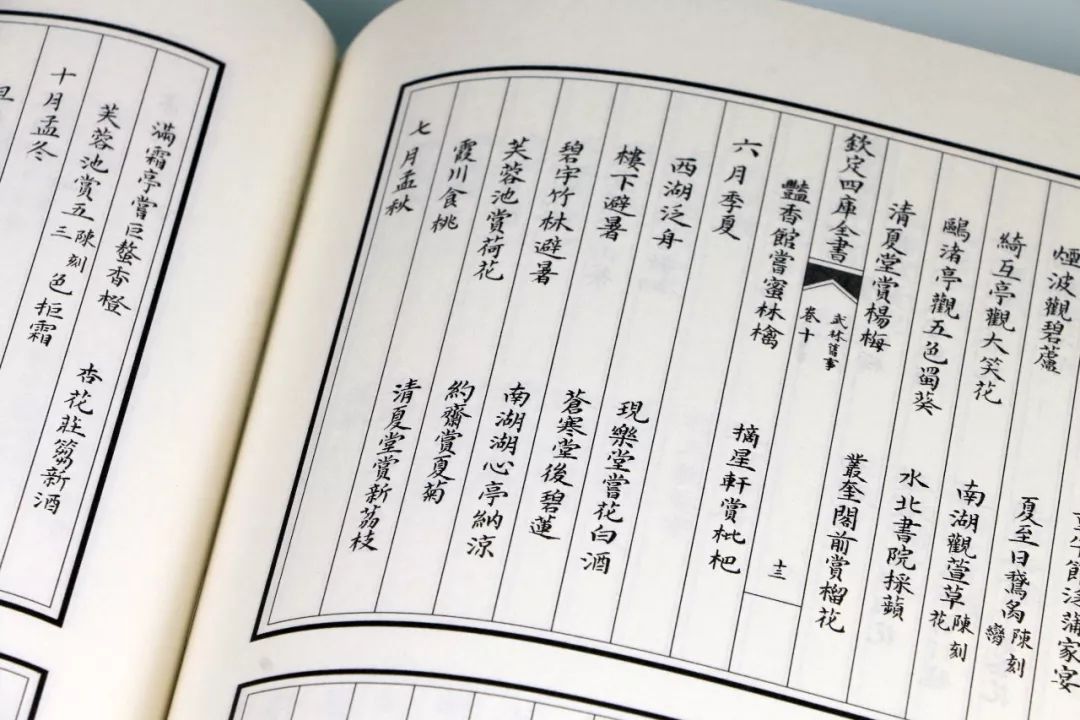 午節泛蒲家宴
煙波觀碧蘆 夏至日鵝臠陳刻臠
綺互亭觀大笑花 南湖觀萱草陳刻花
鷗渚亭觀五色蜀葵 水北書院採蘋
清夏堂賞楊梅 叢奎閣前賞榴花
欽定四庫全書 武林舊事 卷十 十三
豔香館嘗蜜林檎 摘星軒賞枇杷
六月季夏
西湖泛舟 現樂堂嘗花白酒
樓下避暑 蒼寒堂後碧蓮
碧宇竹林避暑 南湖湖心亭納涼
芙蓉池賞荷花 約齋賞夏菊
霞川食桃 清夏堂賞新荔枝
七月孟秋
滿霜亭嘗巨螯香橙 杏花莊篘新酒
芙蓉池賞五三陳刻色拒霜
十月孟冬